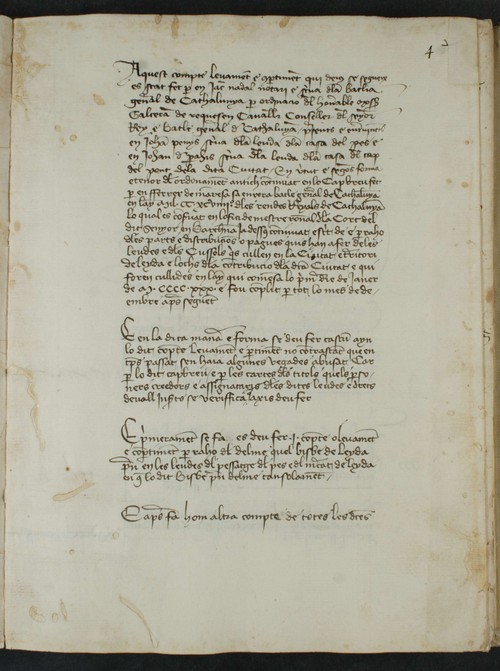 4
Aquest compte levament e partiment qui deius se segueix
es stat fet per en Jacme nadal notari e scriva dela batlia
general de Cathalunya per ordinacio del honrable mossen
Galcera de requesens Cavaller Conseller del senyor
Rey e batle general de Cathalunya presents e entrevinents
en Johan pomys scriva dla leuda dla casa del pes e
en Johan de scriva dla leuda dla casa del cap
del pont dela dita Ciutat En virtut e segons forma
e tenor del ordonament antich continuat en lo Capbreu fet
per en fferrer de manresa en xera batle general de Cathalunya
en lany mil CC XC viiii dles rendes Reyals de Cathalunya
lo qual es conservat en lofici de mestre racional dla Cort del
dit senyor en barchinona Jadessus continuat es dit de e per raho
dles parts e distribucions o pagues quis han a fer de les
leudes e dels Cussols qis cullen en la Ciutat e territori
de leyda e lochs dla contribucio dla dita Ciutat e qui
foren cullides en lany qui comensa lo primer die de Janer
de M CCCC XXX e fou complit per tot lo mes de de-
embre apres seguent
E en la dita manera e forma se deu fer cascun ayn
lo dit compte levament e partiment no contrastant que en
temps passat sen haia algunes vegades abusat Car
per lo dit capbreu e per les cartes dels titols quels perso-
ners creedors e assignataris dles dites leudes e drets
devall inserts se veriffica laxis deu fer
E primerament se fa es deu fer .I. compte o levament
e compartiment per raho del delme quel bisbe de leyda
pren en les leudes del pessatge del pes e del mercat de leyda
en que lo dit bisbe pren delme tan solament
E apres fa hom altra compte de totes les dites